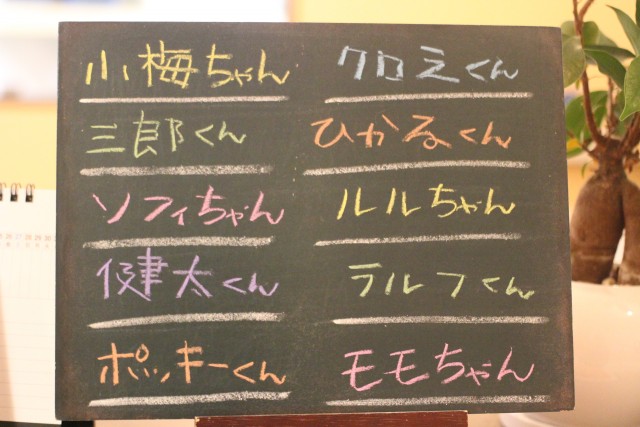 小梅ちゃん
クロえくん
三郎くん
ひかるくん
ソフィちゃん
ルルちゃん
健太くん
ラルフくん
ポッキーくん
モモちゃん